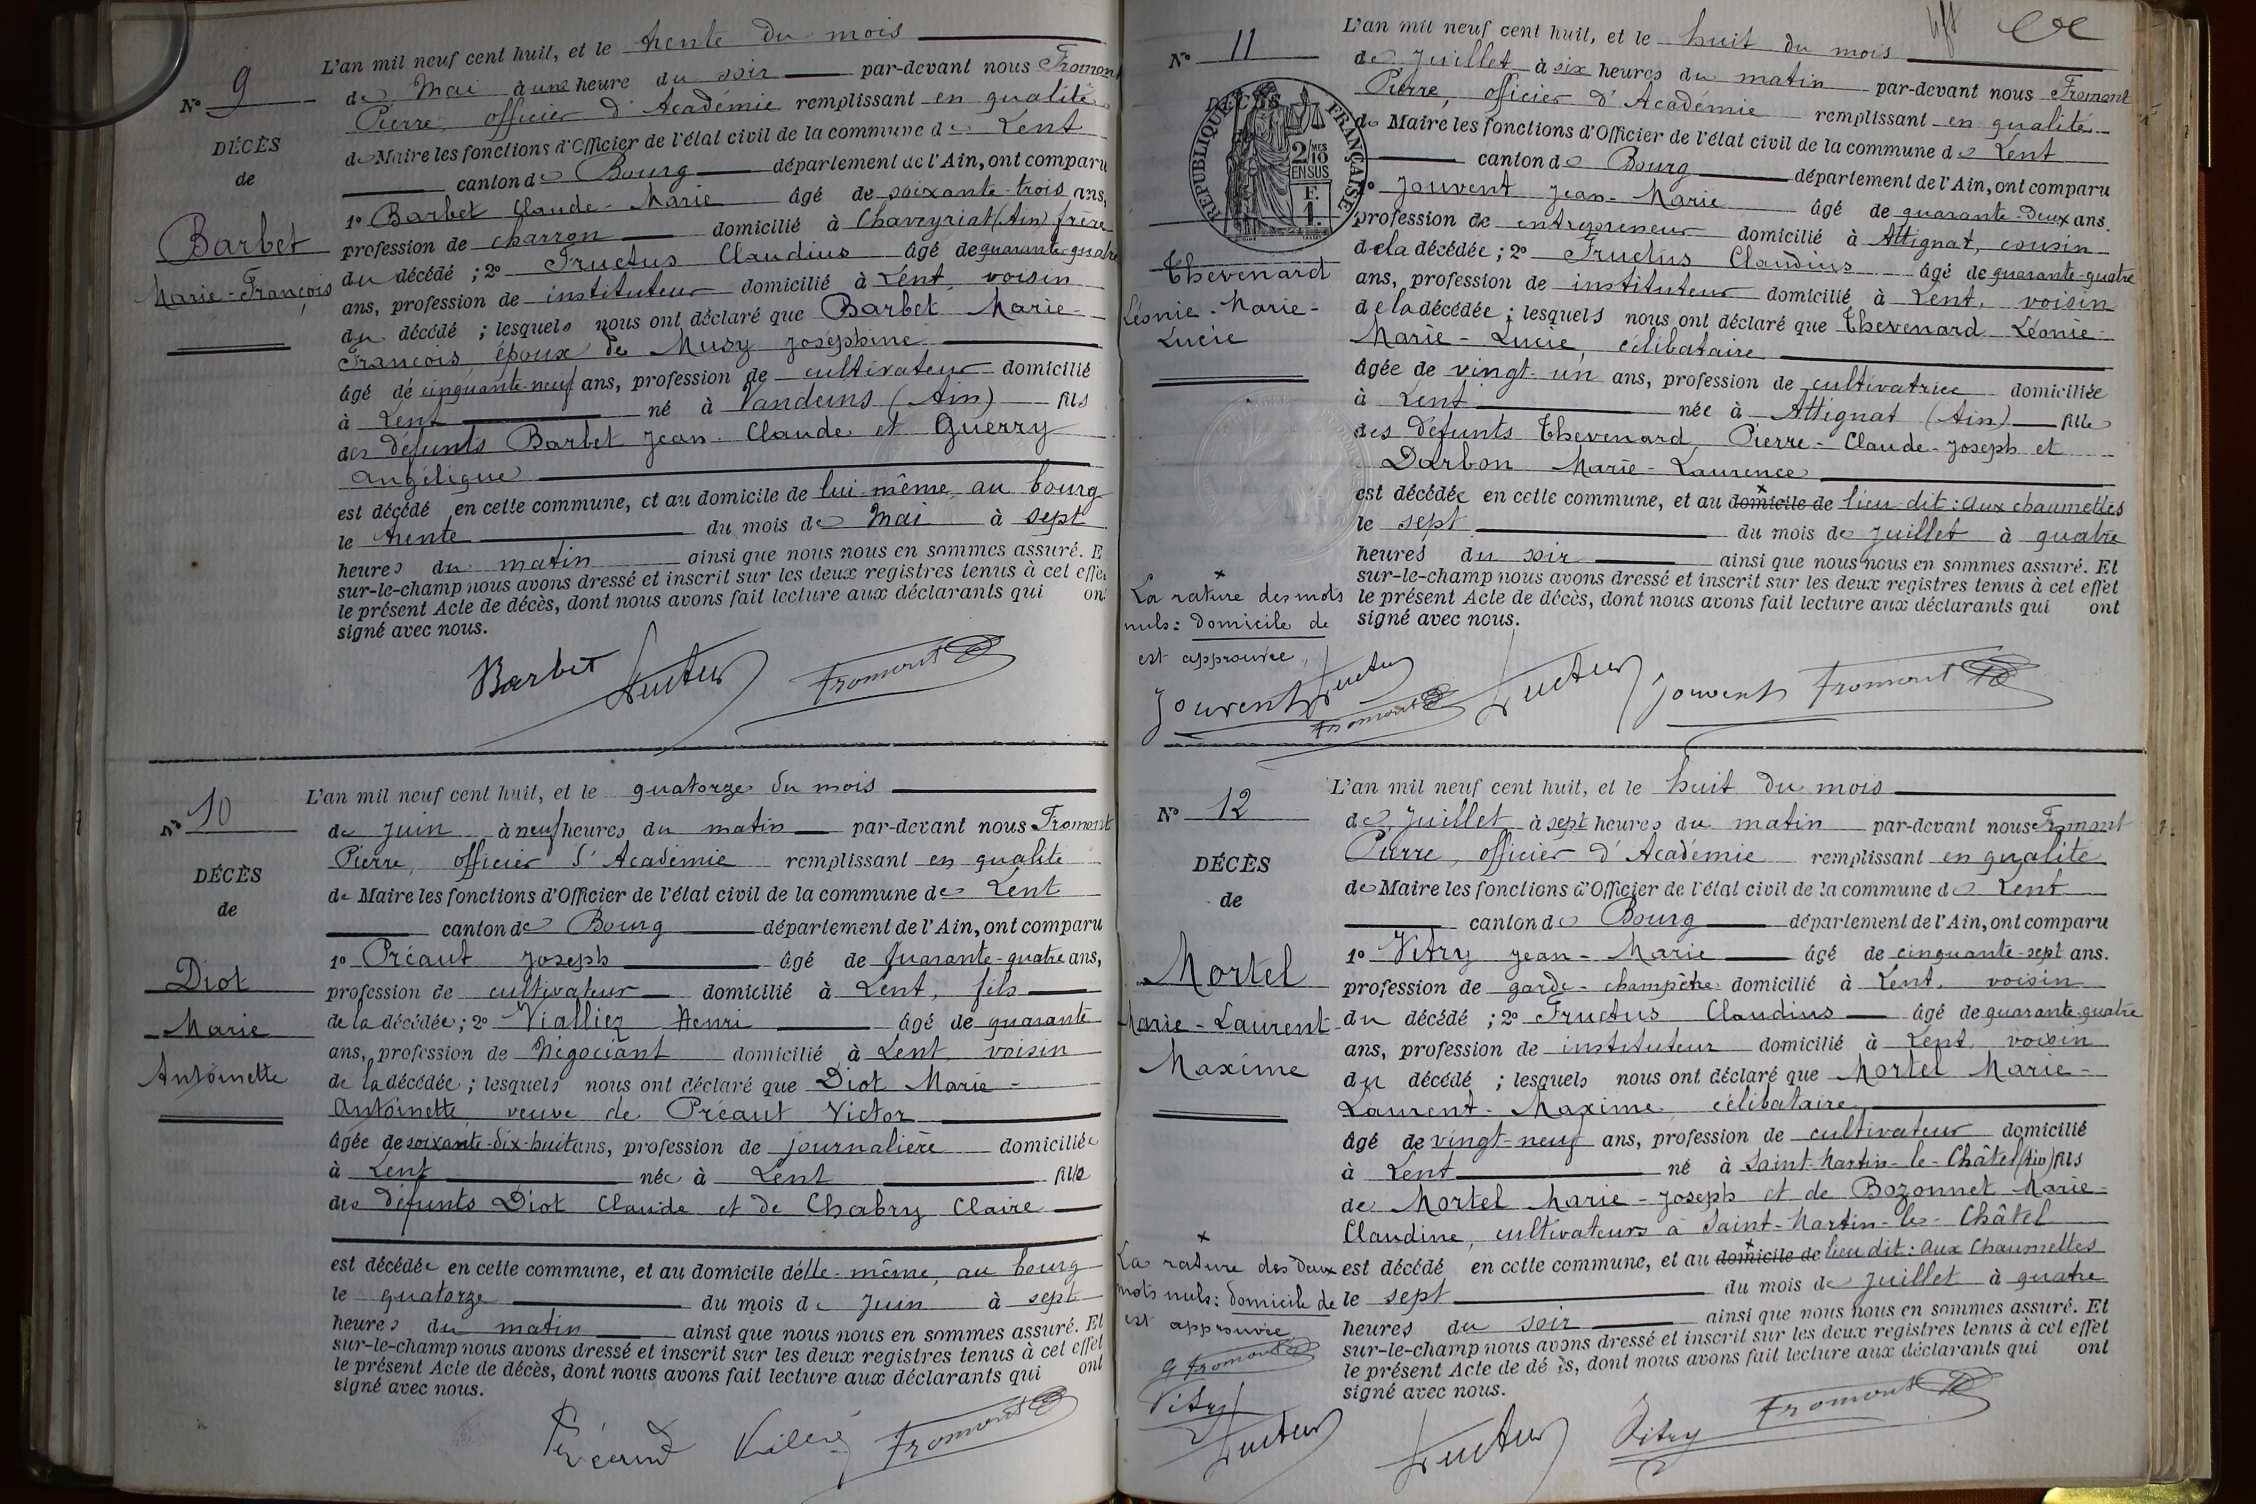 N° 9
DÉCÈS
de
Barbet
Marie-François
L'an mil neuf cent huit, et le trente du mois
de Mai à une heure du soir par-devant nous Fromont
Pierre, officier d'Académie remplissant en qualité
de Maire les fonctions d'Officier de l'état civil de la commune de Lent
canton de Bourg département de l'Ain, ont comparu
1° Barbet Claude-Marie âgé de soixante-trois ans,
profession de charron domicilié à Chaveyriat (Ain) frère
du décédé ; 2° Fructus Claudius âgé de quarante-quatre
ans, profession de instituteur domicilié à Lent, voisin
du décédé ; lesquels nous ont déclaré que Barbet Marie-
François époux de Muzy Joséphine
âgé de cinquante-neuf ans, profession de cultivateur domicilié
à Lent né à Vandeins (Ain) fils
des défunts Barbet Jean-Claude et Guerry
Angélique
est décédé en cette commune, et au domicile de lui-même, au bourg
le trente du mois de Mai à sept
heures du matin ainsi que nous nous en sommes assuré. E
sur-le-champ nous avons dressé et inscrit sur les deux registres tenus à cet effe
le présent Acte de décès, dont nous avons fait lecture aux déclarants qui on
signé avec nous.
Barbet Fructus Fromont
N° 10
DÉCÈS
de
Diot
Marie
Antoinette
L'an mil neuf cent huit, et le quatorze du mois
de Juin à neuf heures du matin par-devant nous Fromont
Pierre, officier d'Académie remplissant en qualité
de Maire les fonctions d'Officier de l'état civil de la commune de Lent
canton de Bourg département de l'Ain, ont comparu
1° Préaut Joseph âgé de quarante-quatre ans,
profession de cultivateur domicilié à Lent, fils
de la décédée ; 2° Viallier Henri âgé de quarante
ans, profession de Négociant domicilié à Lent, voisin
de la décédée ; lesquels nous ont déclaré que Diot Marie-
Antoinette veuve de Préaut Victor
âgée de soixante-dix-huit ans, profession de journalière domiciliée
à Lent née à Lent fille
des défunts Diot Claude et de Chabry Claire
est décédée en cette commune, et au domicile d'elle-même, au bourg
le quatorze du mois de Juin à sept
heures du matin ainsi que nous nous en sommes assuré. Et
sur-le-champ nous avons dressé et inscrit sur les deux registres tenus à cet effet
le présent Acte de décès, dont nous avons fait lecture aux déclarants qui ont
signé avec nous.
Fromont
N° 11
DÉCÈS
RÉPUBLIQUE FRANÇAISE
2/10 MES
EN SUS
F.
1.
Thevenard
Léonie-Marie-
Lucie
L'an mil neuf cent huit, et le huit du mois
de Juillet à six heures du matin par-devant nous Fromont
Pierre, officier d'Académie remplissant en qualité
de Maire les fonctions d'Officier de l'état civil de la commune de Lent
canton de Bourg département de l'Ain, ont comparu
1° Jouvent Jean-Marie âgé de quarante-deux ans.
profession de entrepreneur domicilié à Attignat, cousin
de la décédée ; 2° Fructus Claudius âgé de quarante-quatre
ans, profession de instituteur domicilié à Lent, voisin
de la décédée ; lesquels nous ont déclaré que Thevenard Léonie-
Marie-Lucie, célibataire
âgée de vingt-un ans, profession de cultivatrice domiciliée
à Lent née à Attignat (Ain) fille
des défunts Thevenard Pierre-Claude-Joseph et
Darbon Marie-Laurence
est décédée en cette commune, et au domicile de lieu dit : aux chaumettes
le sept du mois de Juillet à quatre
heures du soir ainsi que nous nous en sommes assuré. Et
sur-le-champ nous avons dressé et inscrit sur les deux registres tenus à cet effet
le présent Acte de décès, dont nous avons fait lecture aux déclarants qui ont
signé avec nous.
La rature des mots
nuls : domicile de
est approuvée,
Jouvent Fructus Fromont
Fructus Jouvent Fromont
N° 12
DÉCÈS
de
Mortel
Marie-Laurent-
Maxime
L'an mil neuf cent huit, et le huit du mois
de Juillet à sept heures du matin par-devant nous Fromont
Pierre, officier d'Académie remplissant en qualité
de Maire les fonctions d'Officier de l'état civil de la commune de Lent
canton de Bourg département de l'Ain, ont comparu
1° Vitry Jean-Marie âgé de cinquante-sept ans.
profession de garde-champêtre domicilié à Lent, voisin
du décédé ; 2° Fructus Claudius âgé de quarante-quatre
ans, profession de instituteur domicilié à Lent, voisin
du décédé ; lesquels nous ont déclaré que Mortel Marie-
Laurent-Maxime, célibataire
âgé de vingt-neuf ans, profession de cultivateur domicilié
à Lent né à Saint-Martin-le-Châtel (Ain) fils
de Mortel Marie-Joseph et de Bozonnet Marie-
Claudine, cultivateurs à Saint-Martin-le-Châtel
est décédé en cette commune, et au domicile de lieu dit : aux Chaumettes
le sept du mois de Juillet à quatre
heures du soir ainsi que nous nous en sommes assuré. Et
sur-le-champ nous avons dressé et inscrit sur les deux registres tenus à cet effet
le présent Acte de dé ès, dont nous avons fait lecture aux déclarants qui ont
signé avec nous.
La rature des deux
mots nuls : domicile de
est approuvée,
Fromont
Vitry
Fructus
Fructus Vitry Fromont